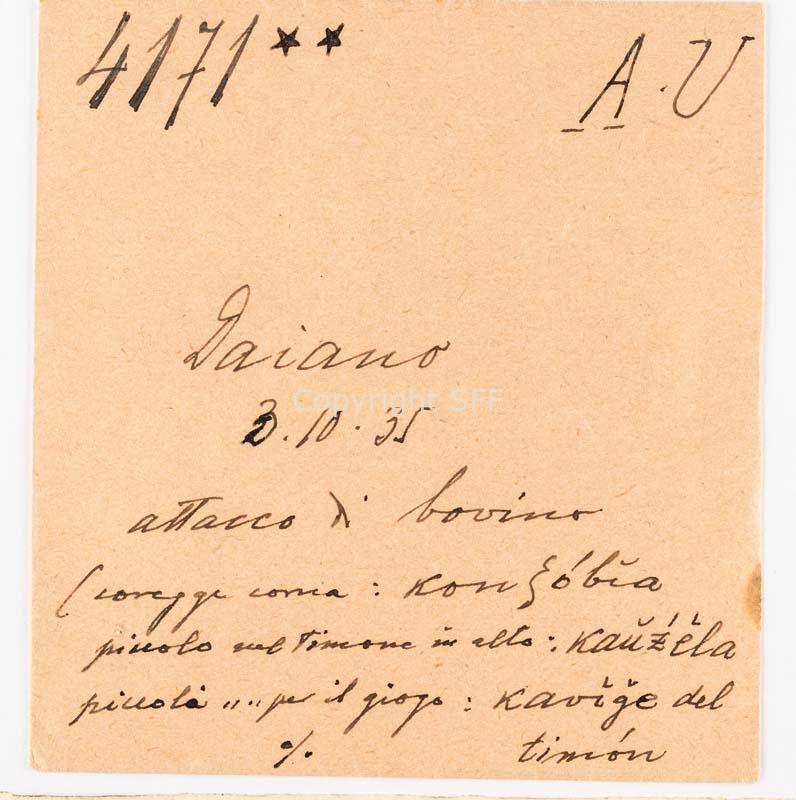 4171** A.V
Daiano
3.10.35
attacco di bovino
(coregge corna : konʒóbĭa
piccolo nel timone in alto : kaŭžĕla
piccoli „ „ per il giogo : kavĭğe del
%. timón
Copyright SFF